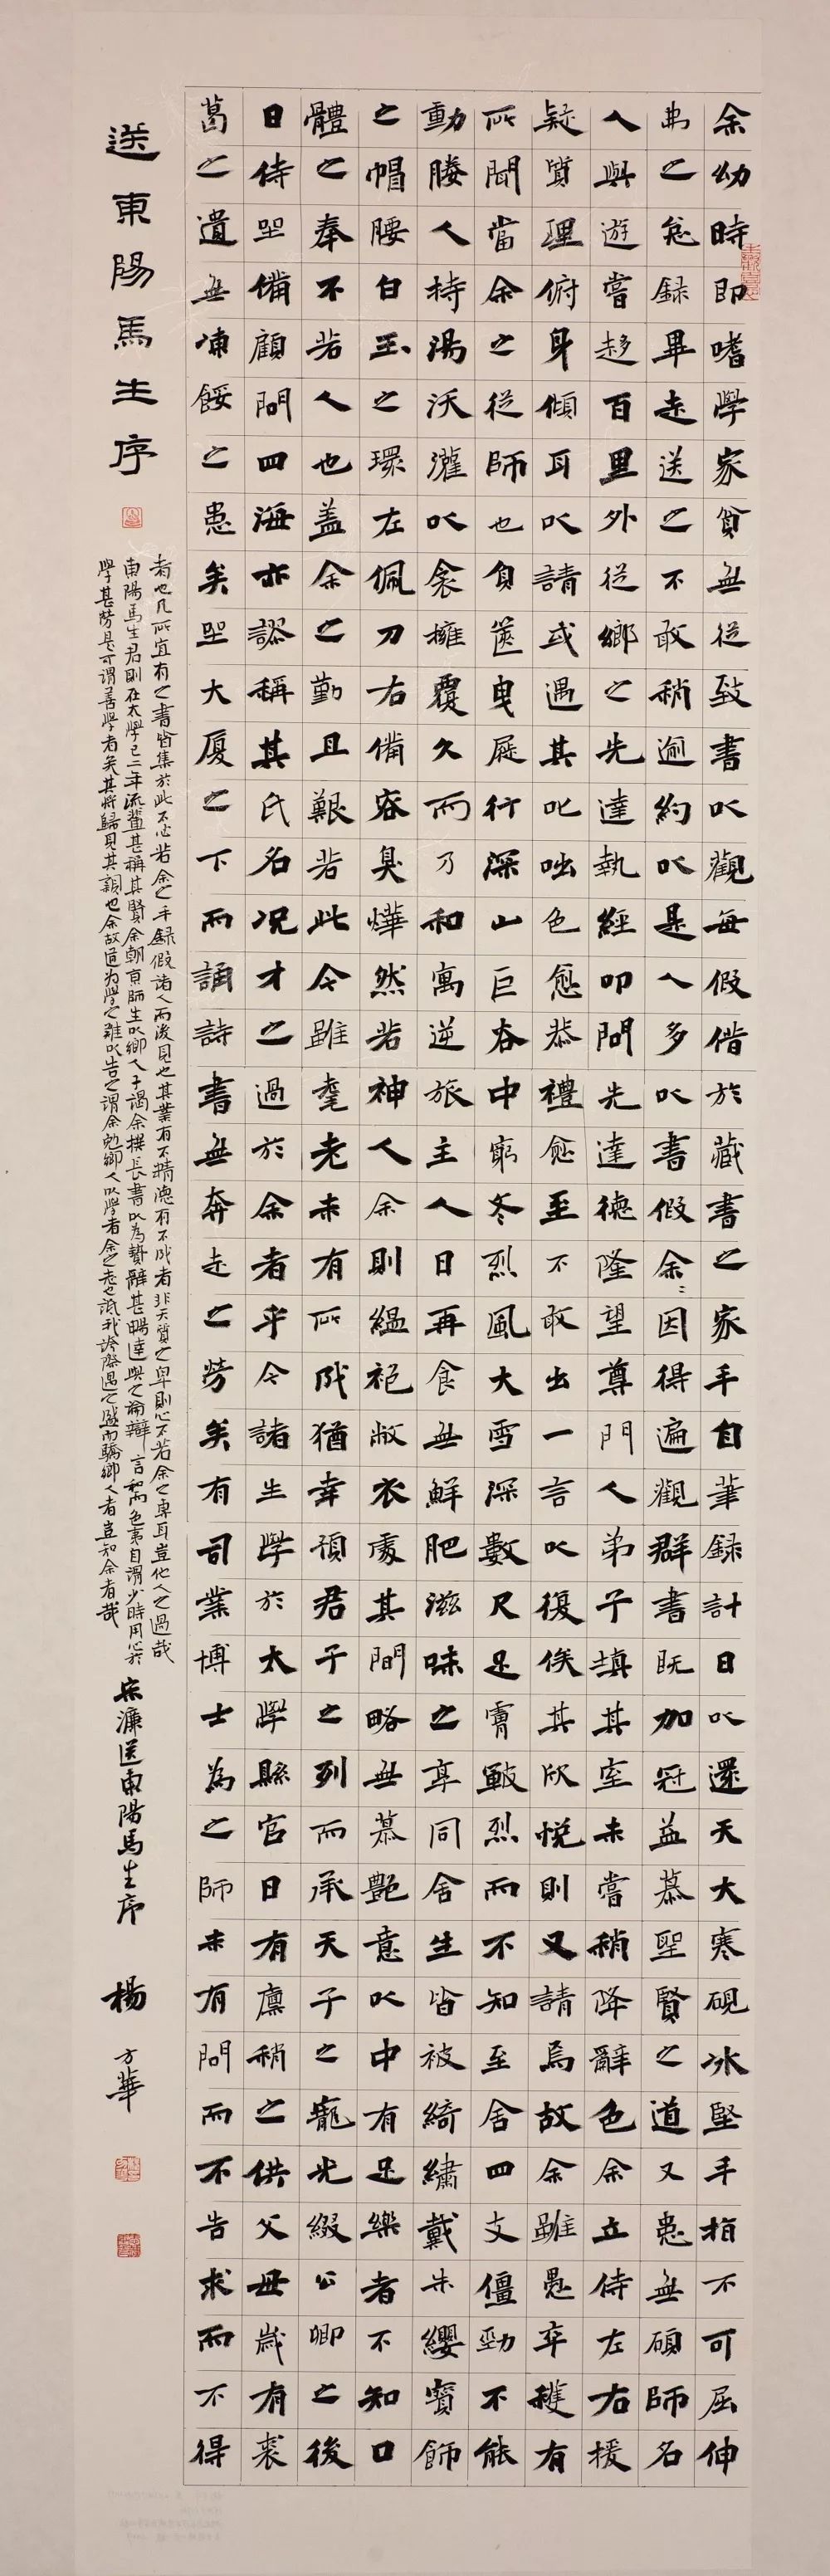 余幼時即嗜學家貧無從致書以觀每假借於藏書之家手自筆録計日以還天大寒硯冰堅手指不可屈伸
弗之怠録畢走送之不敢稍逾約以是人多以書假余〻因得遍觀群書既加冠益慕聖賢之道又患無碩師名
人與遊嘗趨百里外從鄉之先達執經叩問先達德隆望尊門人弟子填其室未嘗稍降辭色余立侍左右援
疑質理俯身傾耳以請或遇其叱咄色愈恭禮愈至不敢出一言以復俟其欣悅則又請焉故余雖愚卒獲有
所聞當余之從師也負篋曳屣行深山巨谷中窮冬烈風大雪深數尺足膚皸烈而不知至舍四支僵勁不能
動媵人持湯沃灌以衾擁覆久而乃和寓逆旅主人日再食無鮮肥滋味之享同舍生皆被綺繡戴朱纓寶飾
之帽腰白玉之環左佩刀右備容臭燁然若神人余則縕袍敝衣處其間略無慕艷意以中有足樂者不知口
體之奉不若人也蓋余之勤且艱若此今雖耄老未有所成猶幸預君子之列而承天子之寵光綴公卿之後
日侍坐備顧問四海亦謬稱其氏名況才之過於余者乎今諸生學於太學縣官日有廩稍之供父母歲有裘
葛之遺無凍餒之患矣坐大廈之下而誦詩書無奔走之勞矣有司業博士為之師未有問而不告求而不得
送東陽馬生序
者也凡所宜有之書皆集於此不必若余之手録假諸人而後見也其業有不精德有不成者非天質之卑則心不若余之專耳豈他人之過哉
東陽馬生君則在太學已二年流輩甚稱其賢余朝京師生以鄉人子謁余撰長書以為贄辭甚暢達與之論辯言和而色夷自謂少時用心於
學甚勞是可謂善學者矣其將歸見其親也余故道為學之難以告之謂余勉鄉人以學者余之志也詆我誇際遇之盛而驕鄉人者豈知余者哉
宋濂送東陽馬生序 楊方華